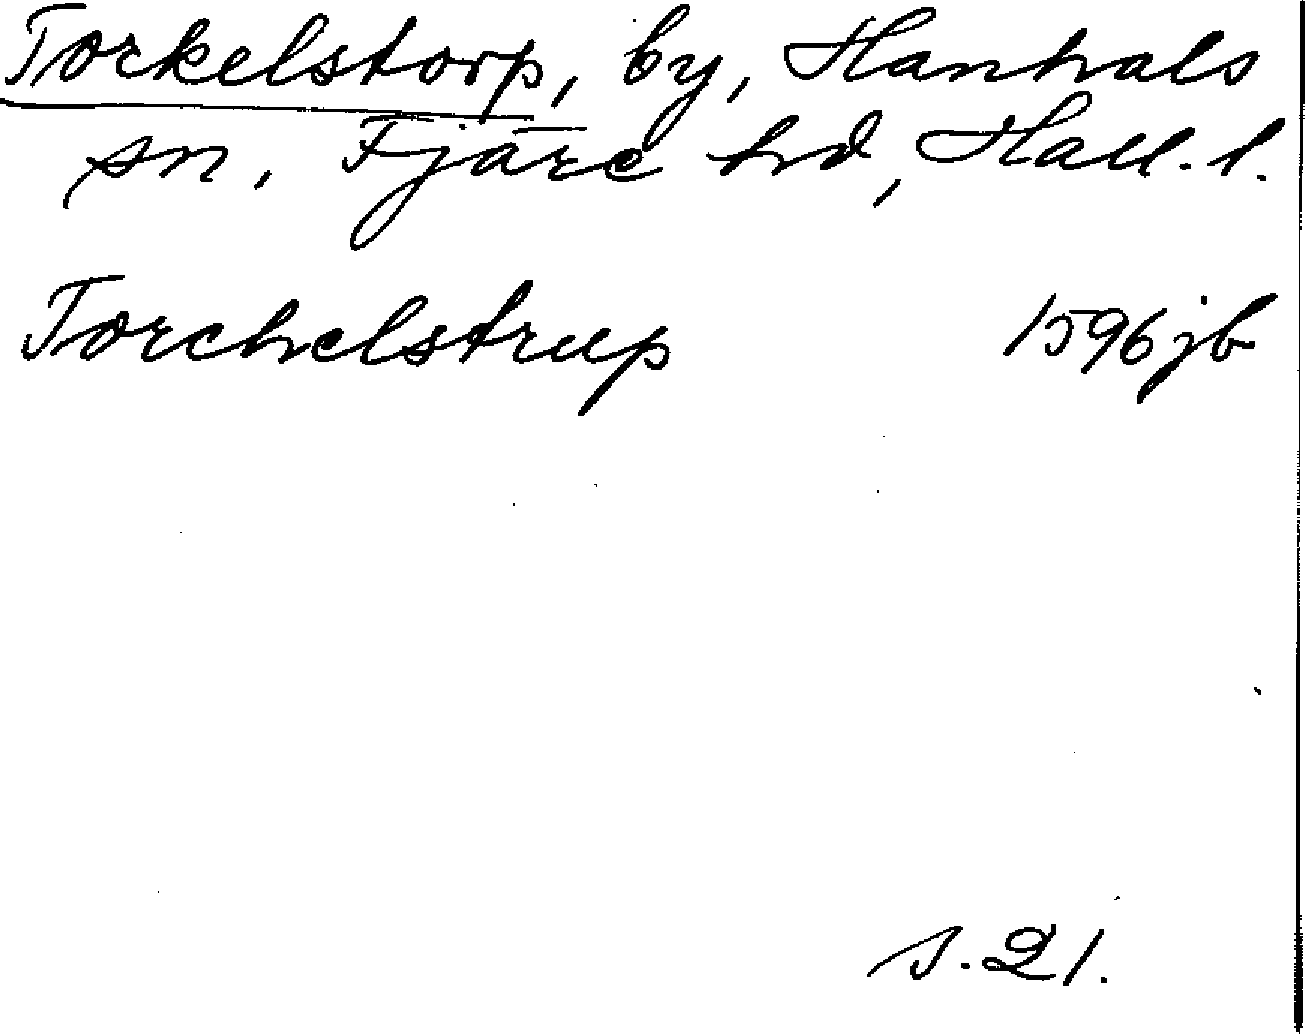 Torkelstorp, by, Hanhals
sn, Fjäre hd, Hall. l.
Torchelstrup 1596 jb
s. 21.